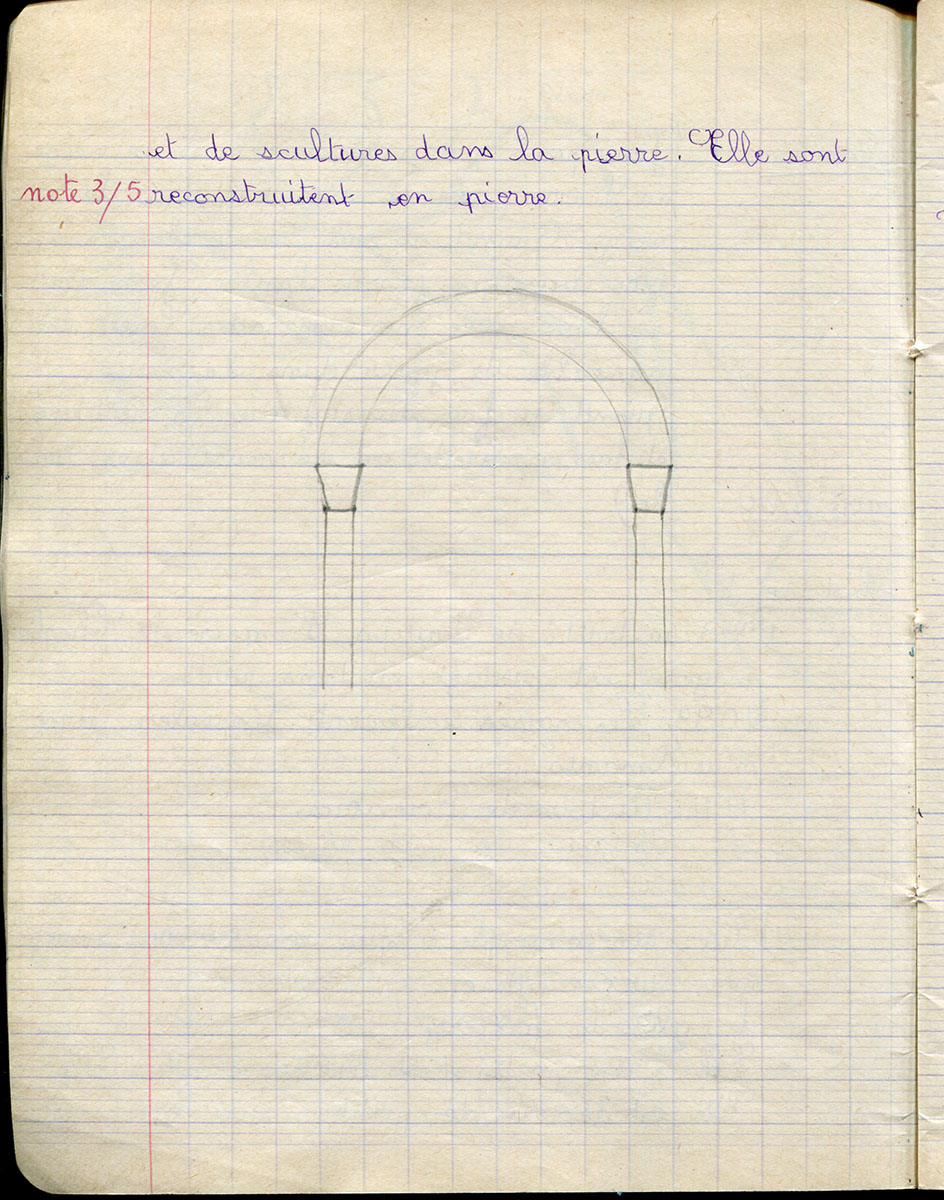 et de scultures dans la pierre. Elle sont
note 3/5 reconstruitent en pierre.